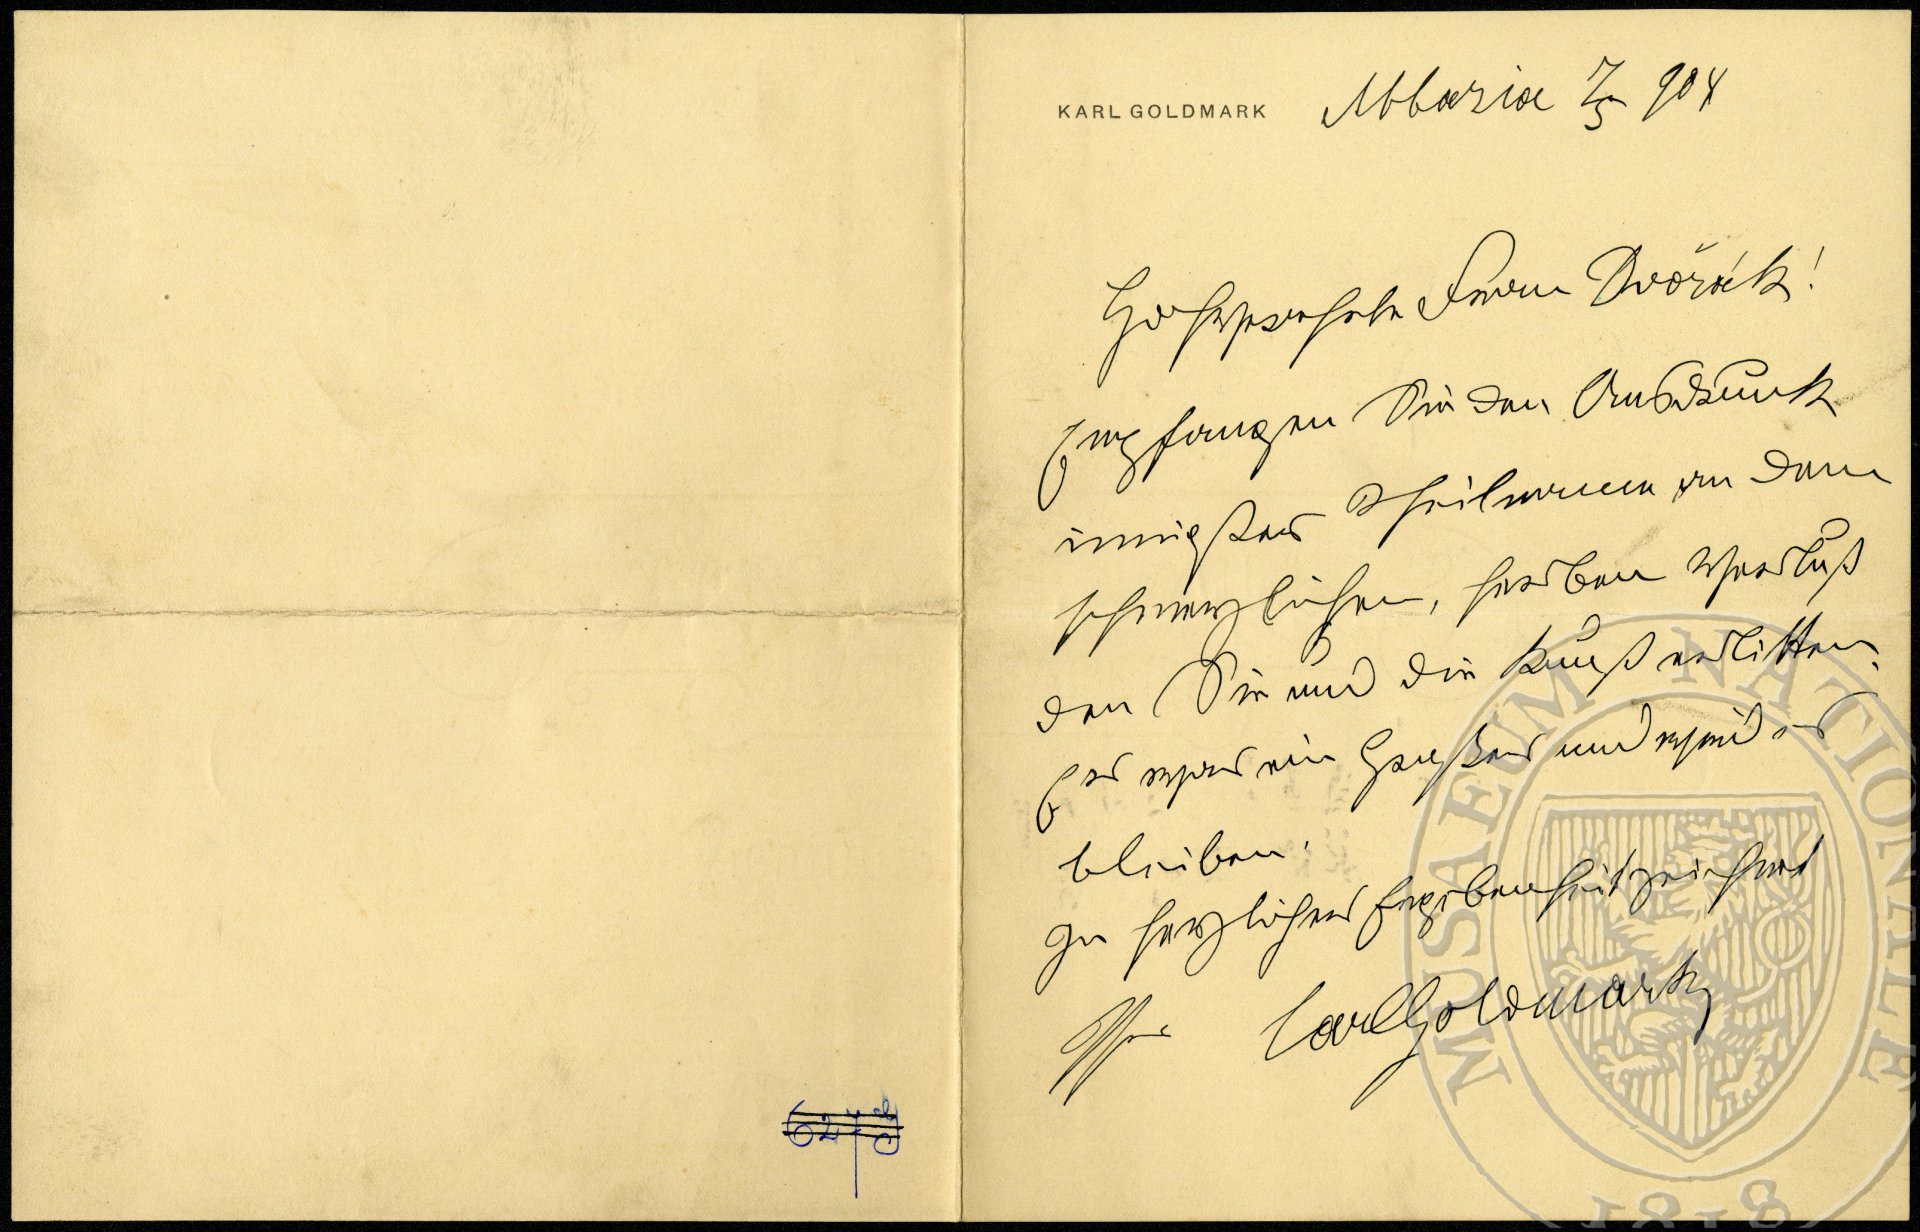 KARL GOLDMARK
Abbazia 7/5 904
Hochverehrte Frau Dvořák!
Empfangen Sie den Ausdruck
innigster Theilname an dem
schmerzlichen, herben Verlust
den Sie und die Kunst erlitten.
Er war ein Großer und wird es
bleiben.
In herzlicher Ergebenheit zeichnet
Ihr Carl Goldmark
MUSAEUM NATIONALE
1818